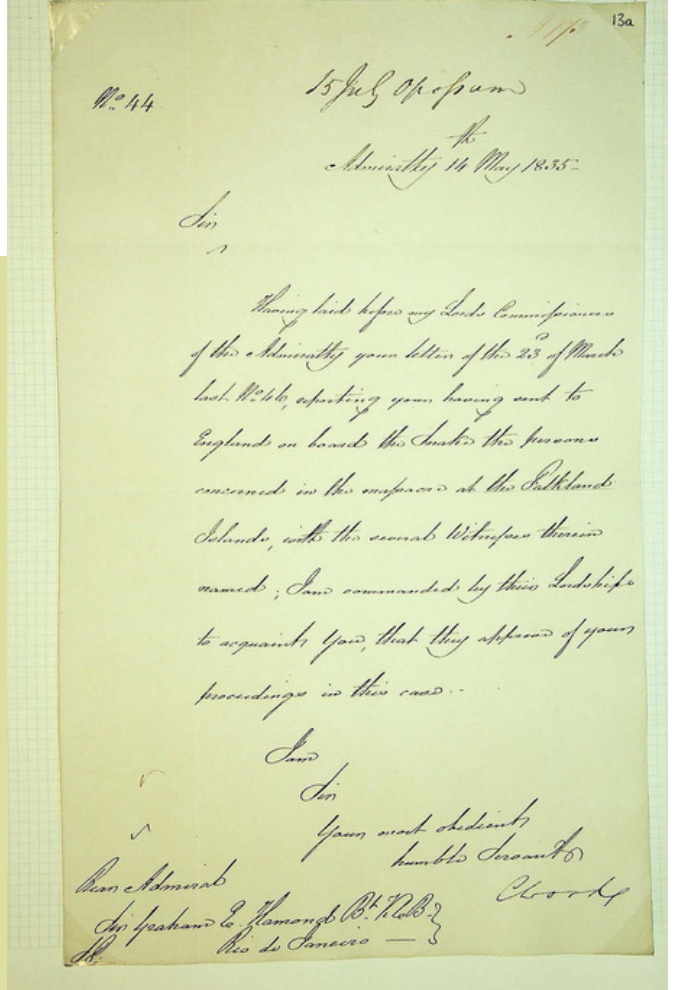 13a
No. 44
15 July Opossum
Admiralty 14th May 1835
Sir
Having laid before my Lords Commissioners
of the Admiralty your letter of the 23d of March
last No. 46, reporting your having sent to
England on board the Snake the persons
concerned in the massacre at the Falkland
Islands, with the several Witnesses therein
named; I am commanded by their Lordships
to acquaint you, that they approve of your
proceedings in this case..
I am
Sir
Your most obedient
humble Servant
C Wood
Rear Admiral
Sir Graham E. Hamond Bt. K.C.B.
Rio de Janeiro —